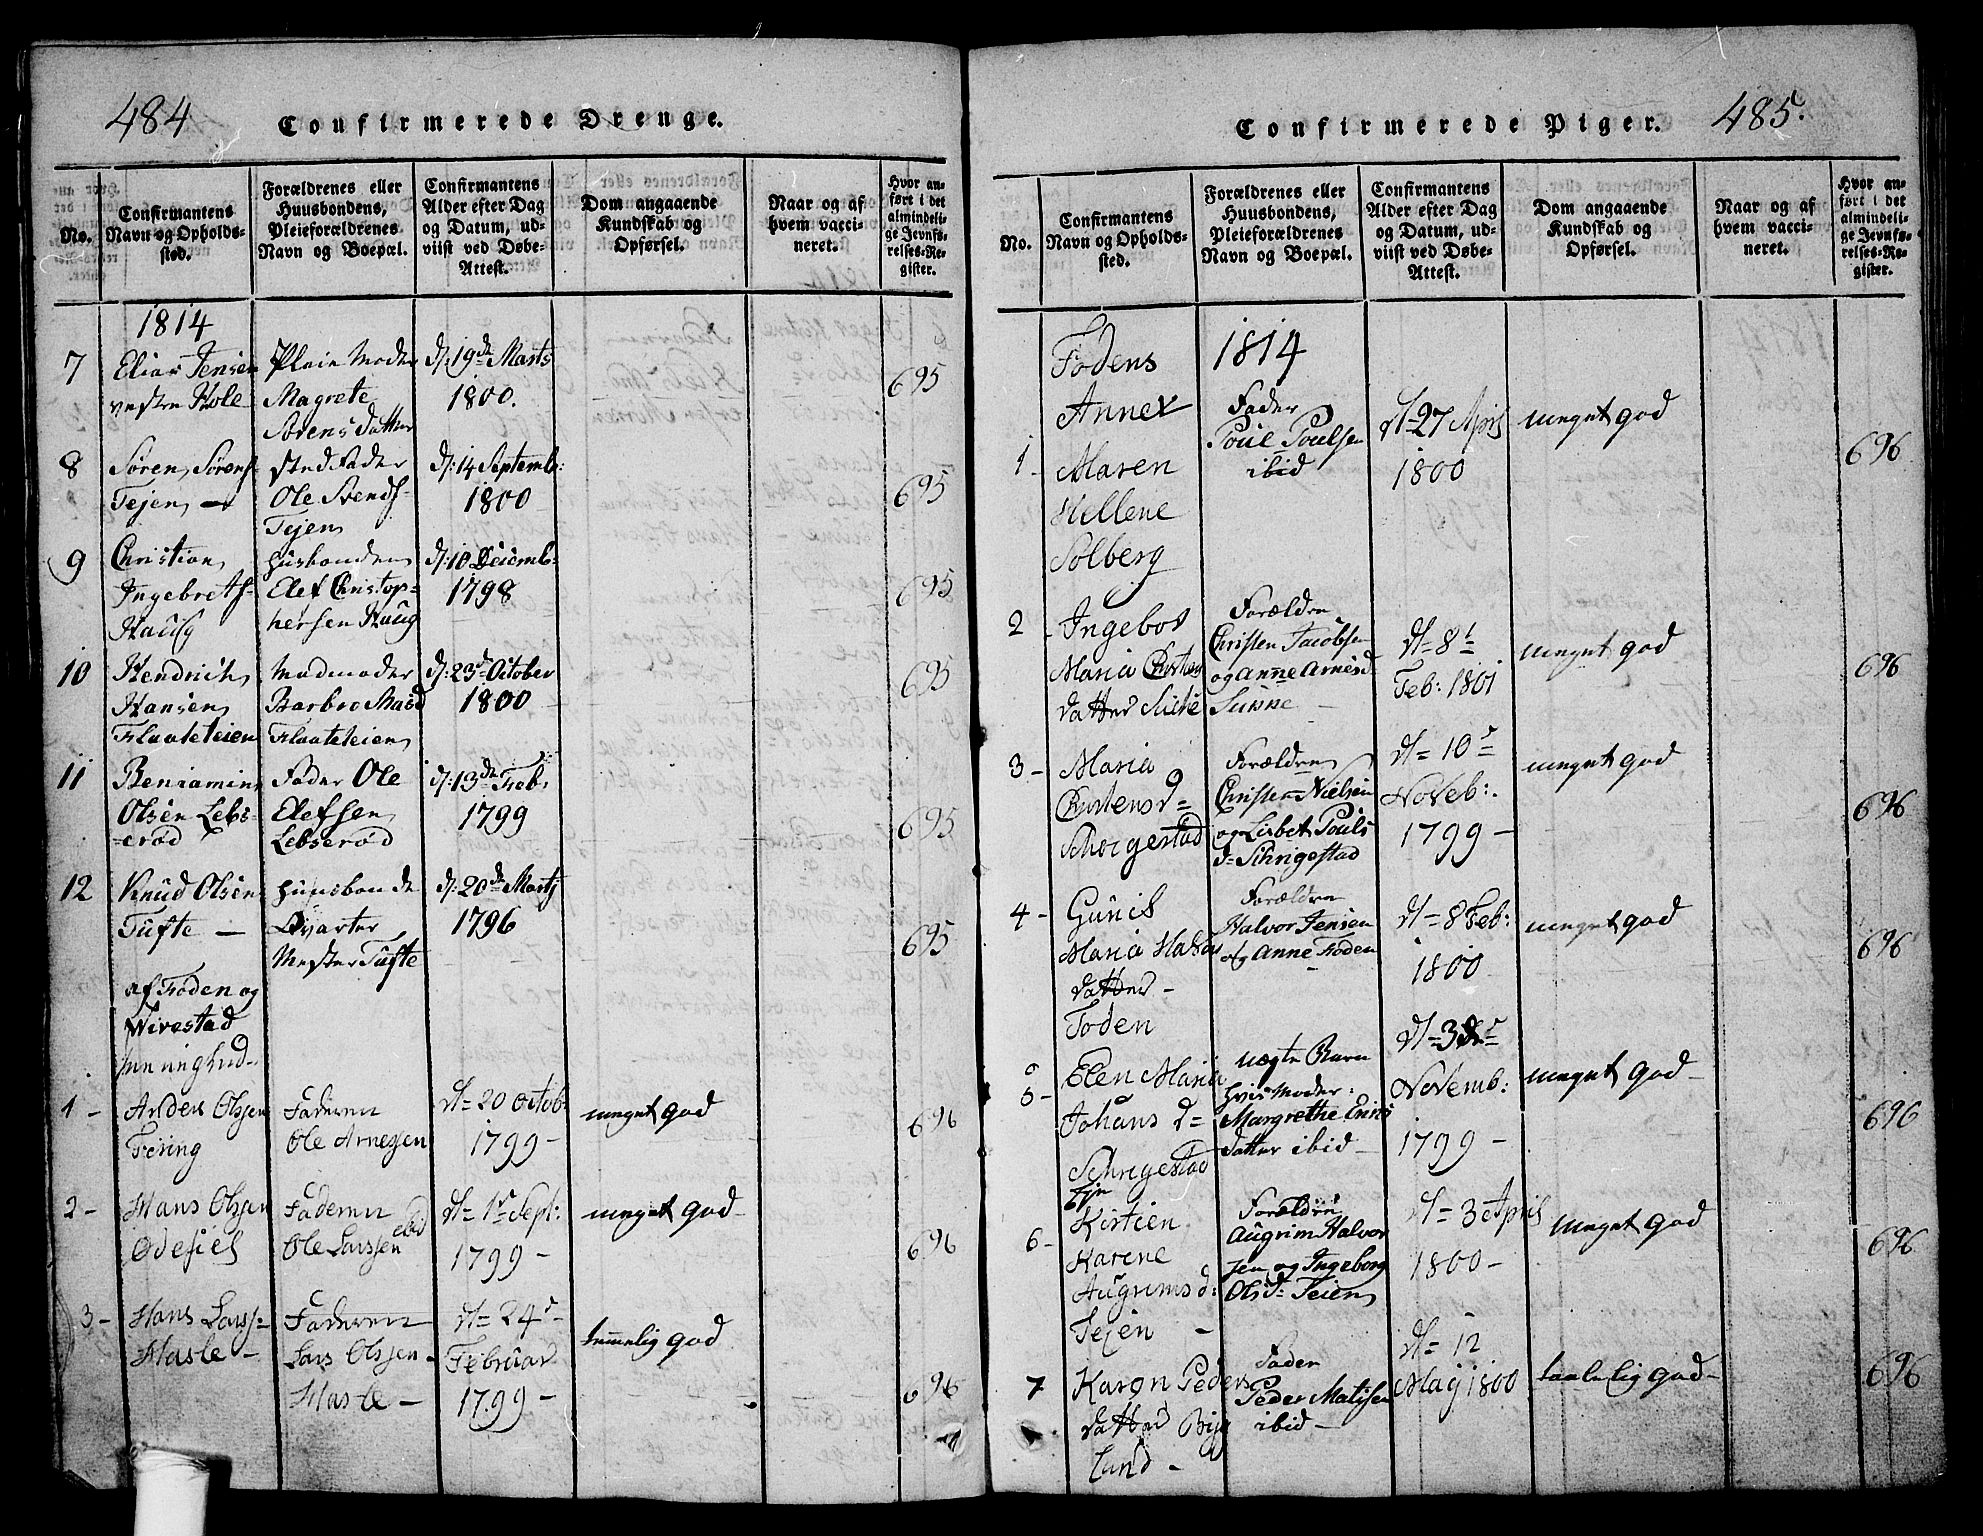 484
Confirmerede Drenge.
No.
Confirmantens
Navn og Opholds-
sted.
Forældrenes eller
Huusbondens,
Pleieforældrenes
Navn og Boepæl.
Confirmantens
Alder efter Dag
og Datum, ud-
viist ved Døbe-
Attest.
Dom angaaende
Kundskab og
Opførsel.
Naar og af
hvem vacci-
neret.
Hvor an-
ført i det
almindeli-
ge Jevnfø-
relses-Re-
gister.
1814
7
Eliar Jensen
vestre Hole
Pleie Moder
Magrete
Sørens Datter
d: 19de Marts
1800.
695
8
Søren Sørens-
Tejen
sted Fader
Ole Svends-
Tejen
d: 14 Septemb:
1800
695
9
Christian
Ingebrets-
Haug
Husbonden
Elef Christop-
hersen Haug
d: 10 Decemb:
1798
695
10
Hendrich
Hansen
Flaateteien
Madmoder
Barbro Masd
Flaateteien
d: 23d October
1800
695
11
Beniamin
Olsen Lebs-
erød
Fader Ole
Elefsen
Lebserød
d: 13de Feb:
1799
695
12
Knud Olsen
Tufte —
Huusbonde
Qvarter
Mester Tufte
d: 20de Marts
1796
695
af Foden og
Wirestad
menninghed
1 -
Anders Olssen
Fering
Faderen
Ole Arnesen
d= 20 Octob:
1799 -
meget god
696
2 -
Hans Olssen
Ødefiel
Faderen
Ole Larssen ibid
d= 1e Sept:
1799 -
meget god
696
3 -
Hans Larss=
Hasle -
Faderen
Lars Olssen
Hasle -
d= 24d
Februar
1799 -
temmelig god
696
485.
Confirmerede Piger.
No.
Confirmantens
Navn og Opholds-
sted.
Forældrenes eller
Huusbondens,
Pleieforældrenes
Navn og Boepæl.
Confirmantens
Alder efter Dag
og Datum, ud-
viist ved Døbe-
Attest.
Dom angaaende
Kundskab og
Opførsel.
Naar og af
hvem vacci-
neret.
Hvor an-
ført i det
almindeli-
ge Jevnfø-
relses-Re-
gister.
Fodens
Annex
1814
1 -
Maren
Hellene
Solberg
Fader
Poul Poulsen
ibid
d= 27 April
1800
meget god
696
2 -
Ingebor
Maria Christens
datter
Forældre
Christen Jacobsen
og Anne Arnesd
Sunne -
d= 8
Feb: 1801
meget god
696
3 -
Maria
Christens d=
Forældre
Christen Nielsen
og Lisbet Pouls
d=
d= 10d
Noveb:
1799 -
meget god
696
4 -
Gunil
Maria Halvor
datter -
Foden
Forældre
Halvor Jensen
og Anne Foden
d= 8 Feb:
1800
meget god
696
5 -
Elen Maria
Johans d=
uægte Barn
hvis Moder:
Margrethe
datter ibid -
Novemb:
1799 -
meget god -
696
6 -
Kirtien
Karene
Augrims d:
Tejen -
Forældre
Augrim Halvor
sen og Ingeborg
Olsd= Teien
d= 3e April
1800 -
meget god
696
7
Karen Peders
datter Bije
land -
Fader
Peder Matisen
ibid -
d= 12
Maij 1800
taalelig god -
696